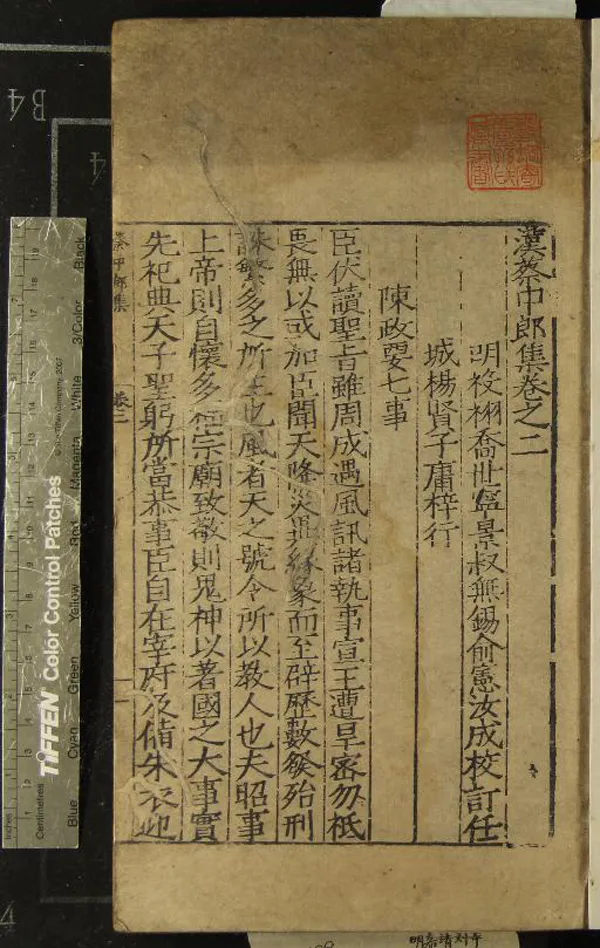 漢蔡中郎集卷之二
明祋栩喬世寧景叔無錫俞憲汝成校訂任
城楊賢子庸梓行
陳政要七事
臣伏讀聖旨雖周成遇風訊諸執事宣王遭旱密勿祗
畏無以或加臣聞天降災異緣象而至辟歷數發殆刑
誅繁多之所生也風者天之號令所以教人也夫昭事
上帝則自懷多福宗廟致敬則鬼神以著國之大事實
先祀典天子聖躬所當恭事臣自在宰府及備朱衣迎
蔡中郎集 卷二
B4
4
TIFFEN Color Control Patches
Blue Cyan Green Yellow Red Magenta White 3/Color Black
Inches
Centimetres